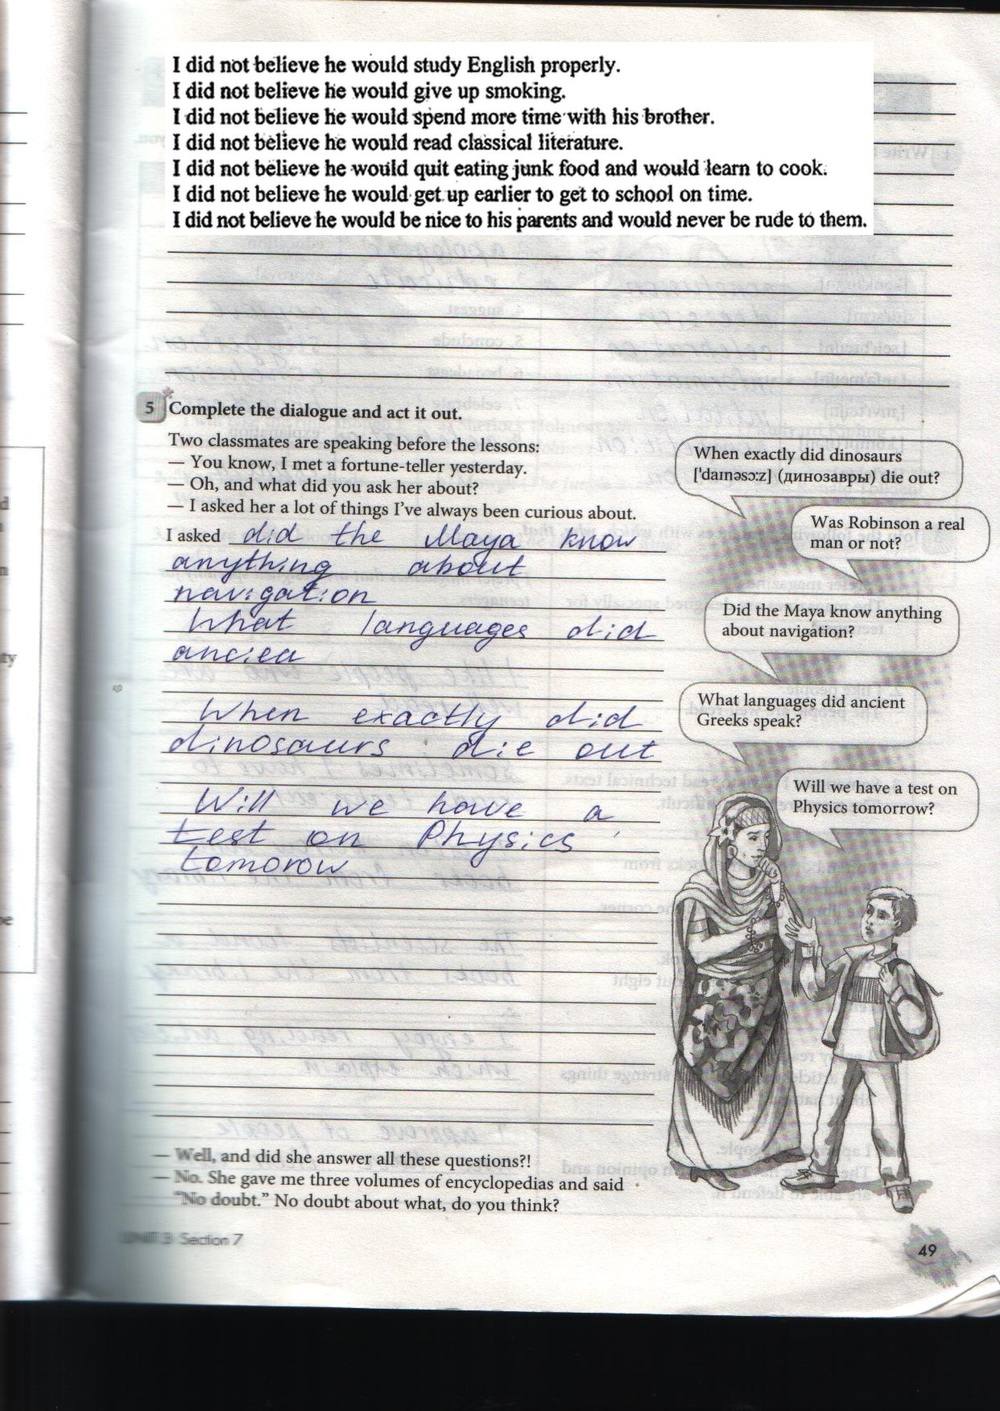 I did not believe he would study English properly.
I did not believe he would give up smoking.
I did not believe he would spend more time with his brother.
I did not believe he would read classical literature.
I did not believe he would quit eating junk food and would learn to cook.
I did not believe he would get up earlier to get to school on time.
I did not believe he would be nice to his parents and would never be rude to them.
5 Complete the dialogue and act it out.
Two classmates are speaking before the lessons:
— You know, I met a fortune-teller yesterday.
— Oh, and what did you ask her about?
— I asked her a lot of things I've always been curious about.
I asked did the Maya know
anything about
navigation
What languages did
anciea
When exactly did
dinosaurs die out
Will we have a
test on Physics
tomorow
When exactly did dinosaurs
['daɪnəsɔ:z] (динозавры) die out?
Was Robinson a real
man or not?
Did the Maya know anything
about navigation?
What languages did ancient
Greeks speak?
Will we have a test on
Physics tomorrow?
— Well, and did she answer all these questions?!
— No. She gave me three volumes of encyclopedias and said
"No doubt." No doubt about what, do you think?
UNIT 3 Section 7
49